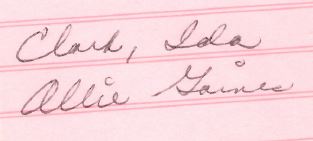 Clark, Ida
Allie Gaines